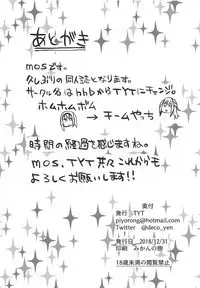 あとがき
mosです。
久しぶりの同人誌となります。
サークル名はhhbからTYTにチェンジ。
ホムホムボム
→ チームやっち
時間の経過で感じますね。
mos、TYT共々これからも
よろしくお願いします!!
奥付
発行 : TYT
piyorong@hotmail.com
Twitter @deco_yen
発行日 2018/12/31
印刷 みかんの樹
18歳未満の閲覧禁止